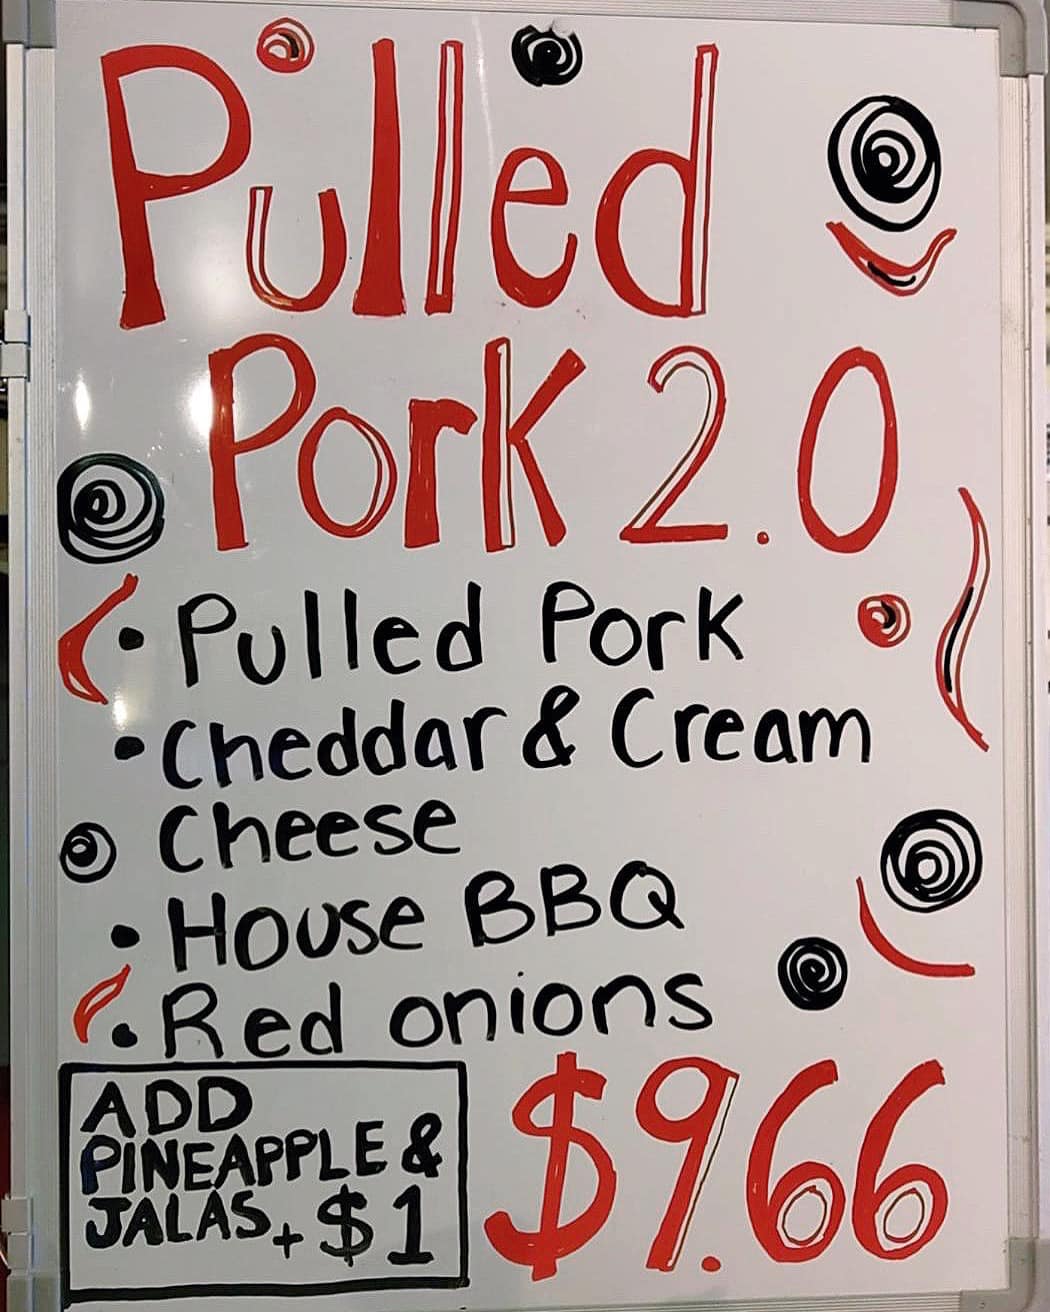 Pulled
Pork 2.0
• Pulled Pork
• Cheddar & Cream
Cheese
• House BBQ
• Red onions
ADD
PINEAPPLE &
JALAS, + $1
$9.66